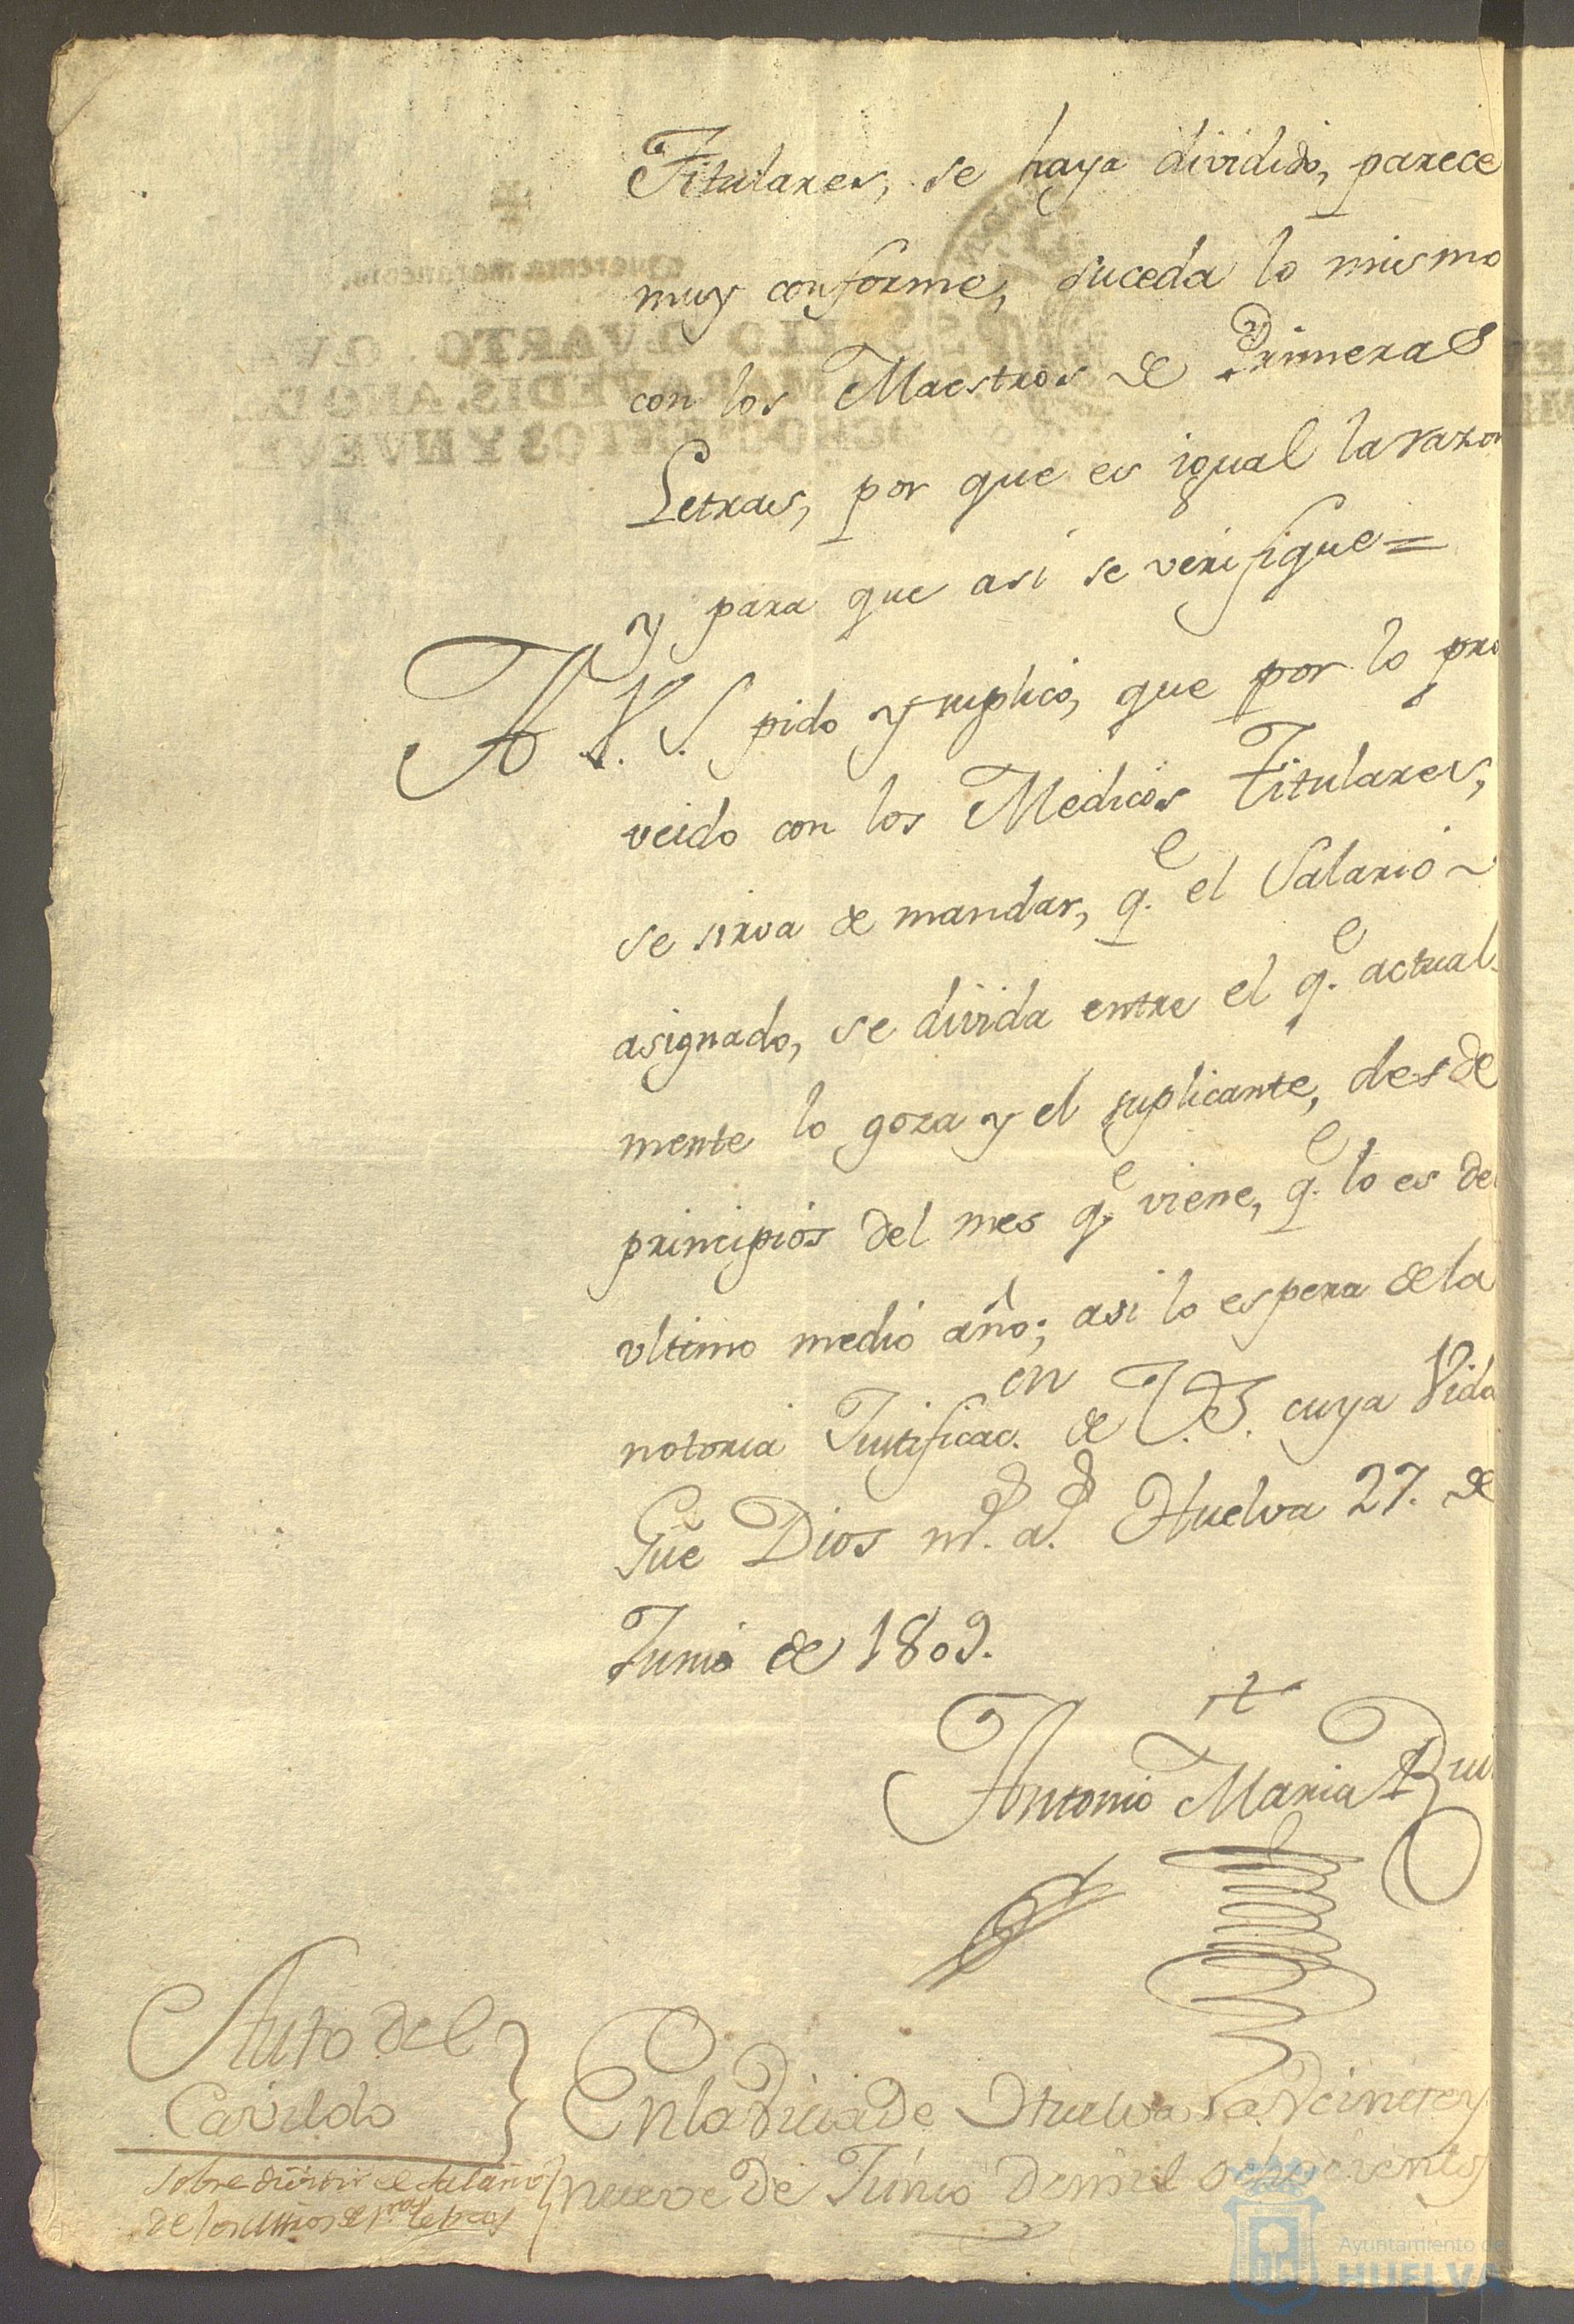 Titulares, se haya dividido, parece
muy conforme, suceda lo mismo
con los Maestros de Primeras
Letras, por que es igual la razon
y para que asi se verifique=
A V. S. pido y suplico, que por lo pro
veido con los Medicos Titulares,
se sirva de mandar, q.e el Salario
asignado, se divida entre el q.e actual
mente lo goza y el suplicante, desde
principios del mes q.e viene, q.e lo es del
ultimo medio año; asi lo espera de la
notoria Justificac.on de V.S. cuya Vida
Gūe Dios m.s a.s Huelva 27. de
Junio de 1809.
Antonio Maria Rui
Auto del
Cavildo
sobre dividir el salario
de los Mños de pras Letras
En la Villa de Huelva a Veinte y
nueve de Junio de mil ochocientos
Ayuntamiento de
HUELVA